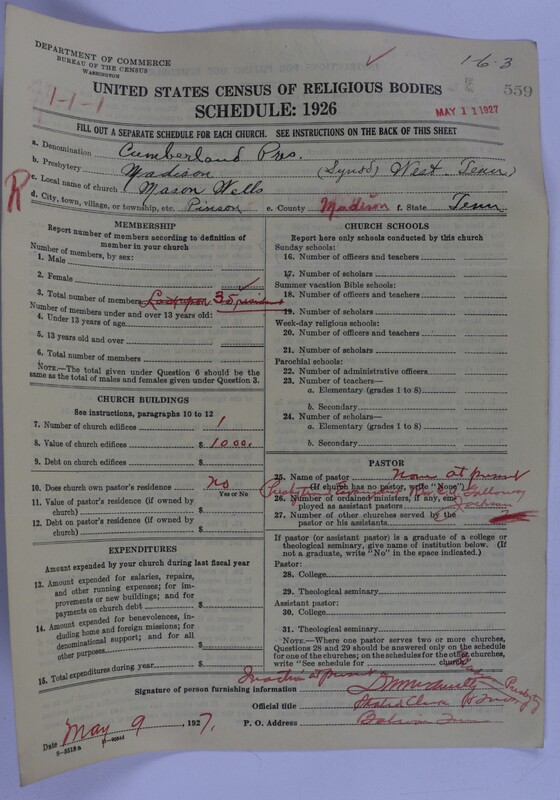 DEPARTMENT OF COMMERCE
BUREAU OF THE CENSUS
WASHINGTON
1-6-3
1-1-1
559
UNITED STATES CENSUS OF RELIGIOUS BODIES
SCHEDULE: 1926
MAY 11 1927
FILL OUT A SEPARATE SCHEDULE FOR EACH CHURCH. SEE INSTRUCTIONS ON THE BACK OF THIS SHEET
a. Denomination Cumberland Pres.
b. Presbytery Madison (Synod) West Tenn
R
c. Local name of church Mason Wells
d. City, town, village, or township, etc. Pinson e. County Madison f. State Tenn
MEMBERSHIP
Report number of members according to definition of member in your church
Number of members, by sex:
1. Male
2. Female
3. Total number of members 35
Number of members under and over 13 years old:
4. Under 13 years of age
5. 13 years old and over
6. Total number of members
NOTE.—The total given under Question 6 should be the same as the total of males and females given under Question 3.
CHURCH BUILDINGS
See instructions, paragraphs 10 to 12
7. Number of church edifices 1
8. Value of church edifices $ 1000.
9. Debt on church edifices $
10. Does church own pastor's residence? No
Yes or No
11. Value of pastor's residence (if owned by church) $
12. Debt on pastor's residence (if owned by church) $
EXPENDITURES
Amount expended by your church during last fiscal year
13. Amount expended for salaries, repairs, and other running expenses; for improvements or new buildings; and for payments on church debt $
14. Amount expended for benevolences, including home and foreign missions; for denominational support; and for all other purposes $
15. Total expenditures during year $
CHURCH SCHOOLS
Report here only schools conducted by this church
Sunday schools:
16. Number of officers and teachers
17. Number of scholars
Summer vacation Bible schools:
18. Number of officers and teachers
19. Number of scholars
Week-day religious schools:
20. Number of officers and teachers
21. Number of scholars
Parochial schools:
22. Number of administrative officers
23. Number of teachers—
a. Elementary (grades 1 to 8)
b. Secondary
24. Number of scholars—
a. Elementary (grades 1 to 8)
b. Secondary
PASTOR
25. Name of pastor None at present
(If church has no pastor, write "None")
26. Number of ordained ministers, if any, employed as assistant pastors
Jackson
27. Number of other churches served by the pastor or his assistants
If pastor (or assistant pastor) is a graduate of a college or theological seminary, give name of institution below. (If not a graduate, write "No" in the space indicated.)
Pastor:
28. College
29. Theological seminary
Assistant pastor:
30. College
31. Theological seminary
NOTE.—Where one pastor serves two or more churches, Questions 28 and 29 should be answered only on the schedule for one of the churches; on the schedules for the other churches, write "See schedule for church."
Inactive at present
Signature of person furnishing information
Official title Stated Clerk
Presbytery
Date May 9, 1927. P. O. Address